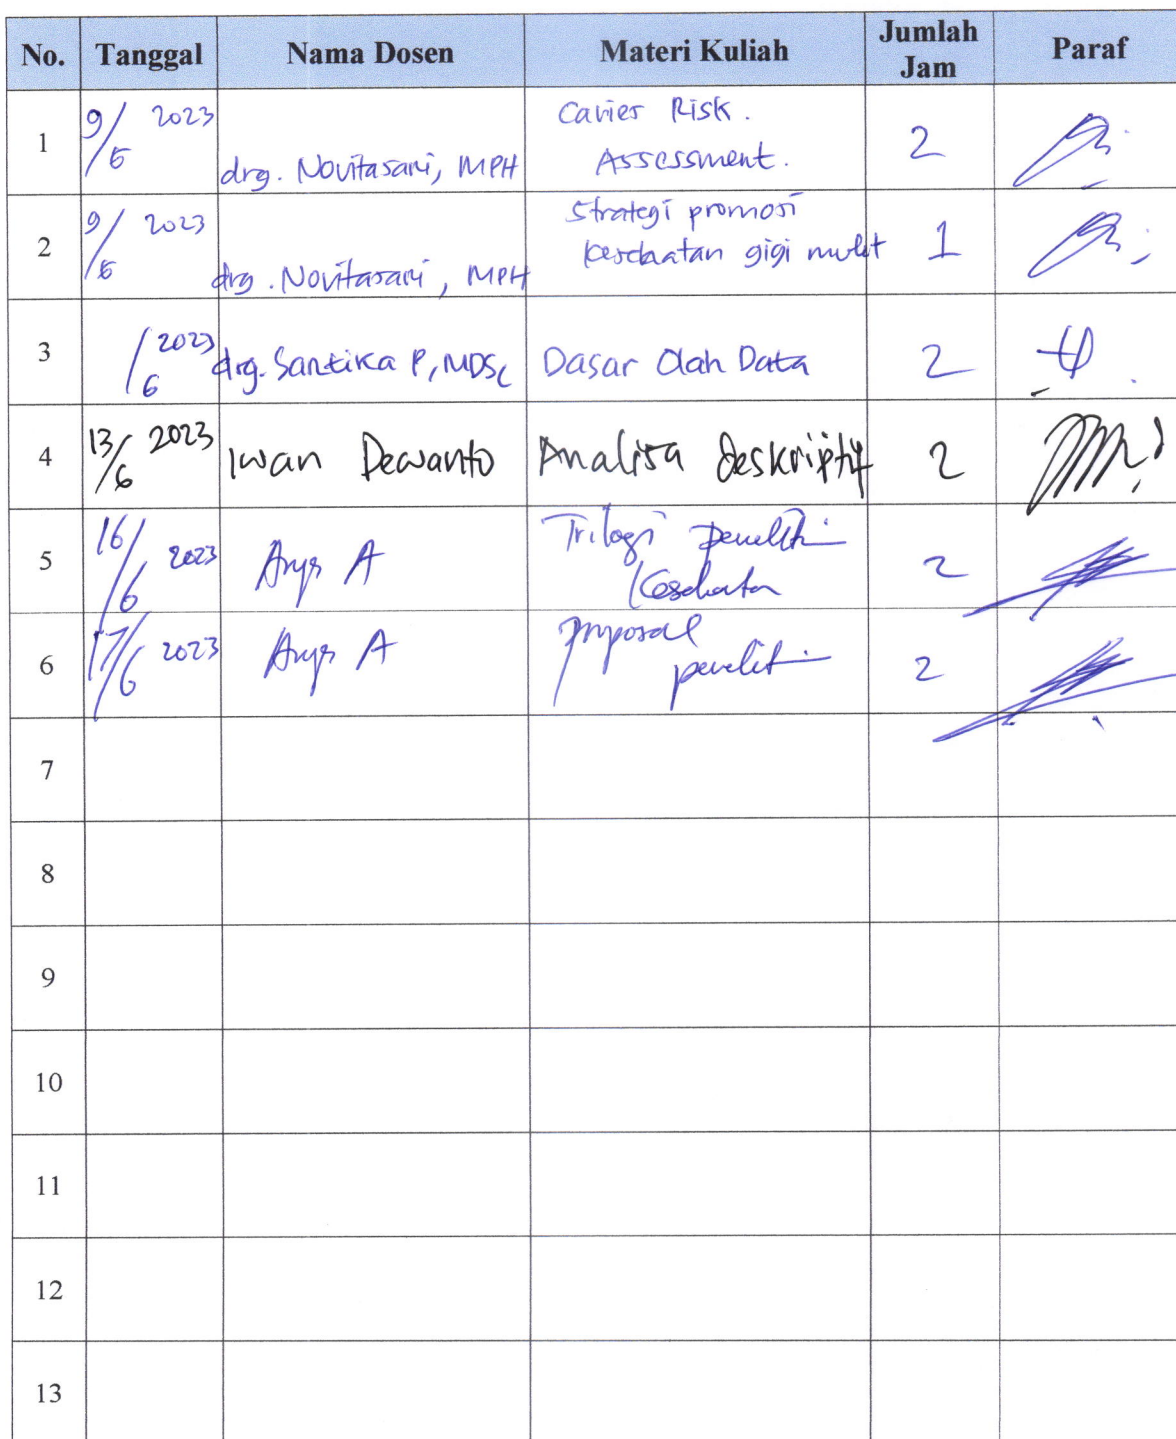 No. Tanggal Nama Dosen Materi Kuliah Jumlah Jam Paraf
1 9/6 2023 drg. Novitasari, MPH Caries Risk. Assessment. 2
2 9/6 2023 drg. Novitasari, MPH Strategi promosi kesehatan gigi mulut 1
3 /6 2023 drg. Santika P, MDSc Dasar Olah Data 2
4 13/6 2023 Iwan Dewanto Analisa deskriptif 2
5 16/6 2023 A Trilogi Kesehata 2
6 17/6 2023 A proposal penelit 2
7
8
9
10
11
12
13